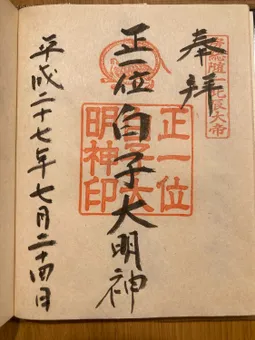 奉拝
正一位白子大明神
正一位
明神印
平成二十七年七月二十四日